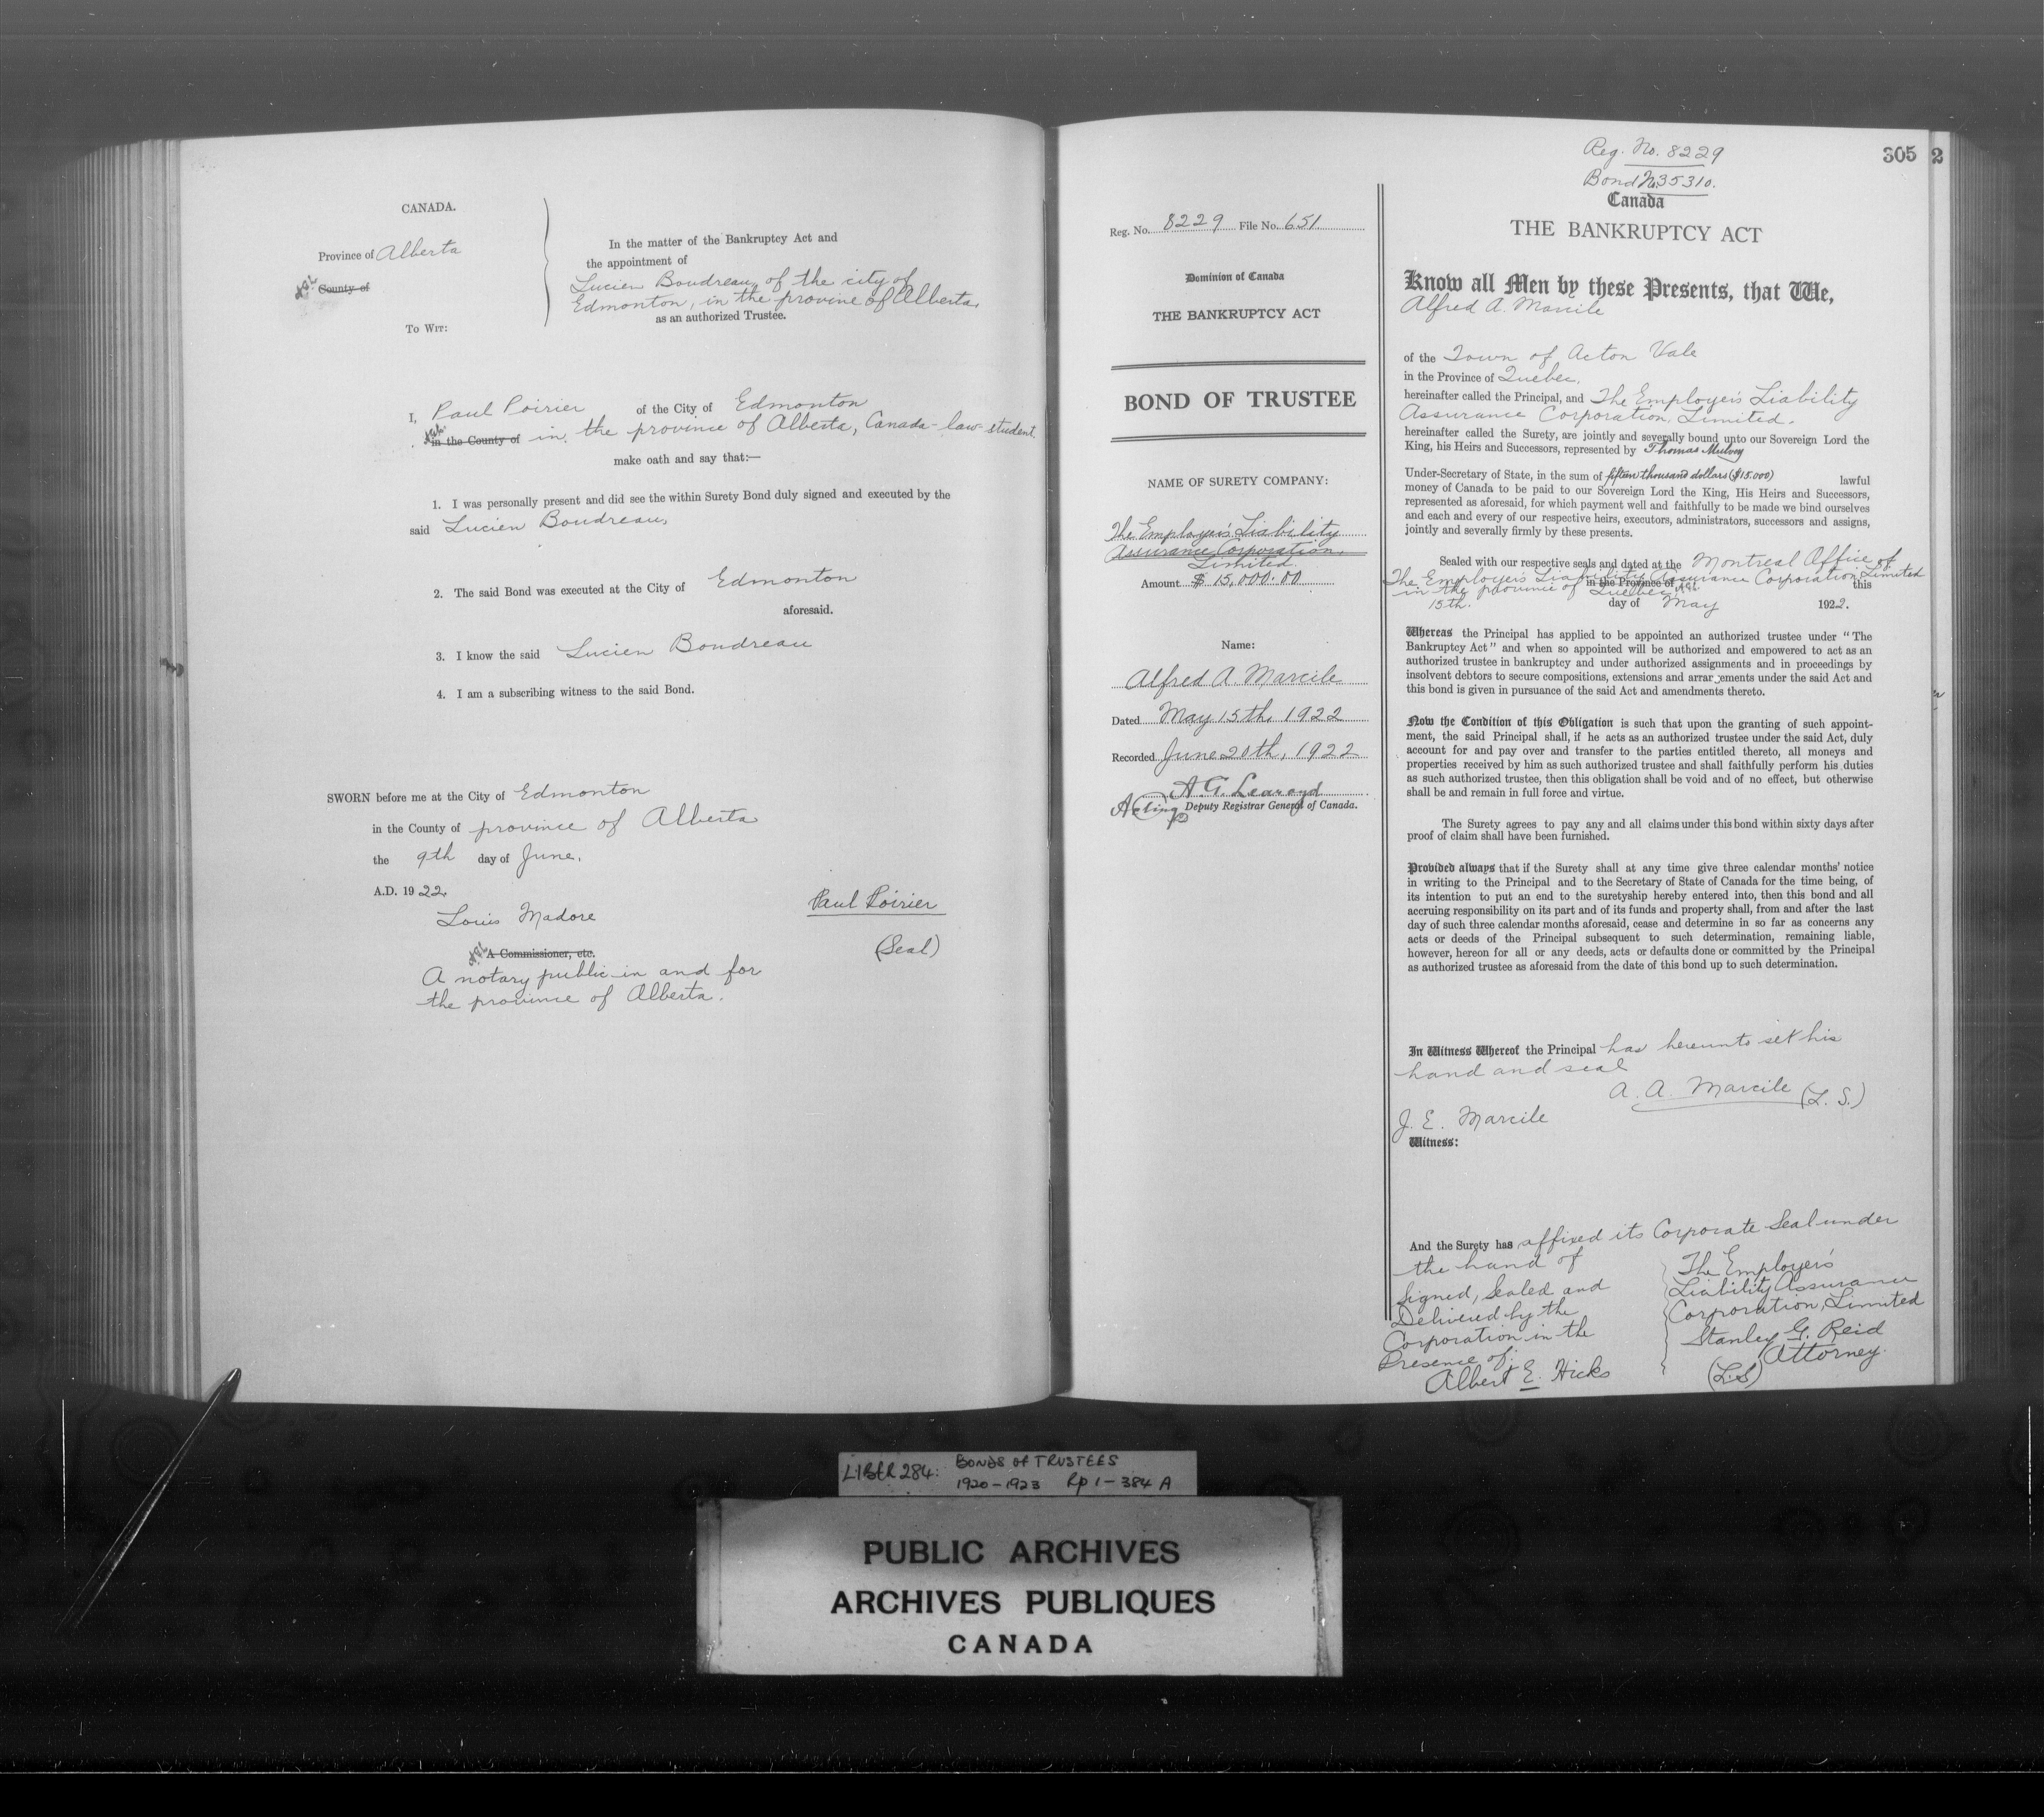 CANADA.
Province of Alberta
County of
To Wit:
In the matter of the Bankruptcy Act and
the appointment of
Lucien Boudreau, of the city of
Edmonton, in the province of Alberta,
as an authorized Trustee.
I, Paul Poirier of the City of Edmonton
in the County of in the province of Alberta, Canada - law-student
make oath and say that:—
1. I was personally present and did see the within Surety Bond duly signed and executed by the
said Lucien Boudreau,
2. The said Bond was executed at the City of Edmonton
aforesaid.
3. I know the said Lucien Boudreau
4. I am a subscribing witness to the said Bond.
SWORN before me at the City of Edmonton
in the County of province of Alberta
the 9th day of June,
A.D. 1922.
Louis Madore
A Commissioner, etc.
A notary public in and for
the province of Alberta.
Paul Poirier
(Seal)
Reg. No. 8229 File No. 651
Dominion of Canada
THE BANKRUPTCY ACT
BOND OF TRUSTEE
NAME OF SURETY COMPANY:
The Employer's Liability
Assurance Corporation,
Limited.
Amount $ 15,000.00
Name:
Alfred A. Marcile
Dated May 15th, 1922
Recorded June 20th, 1922
A. G. Learoyd
Acting Deputy Registrar General of Canada.
305 2
Reg. No. 8229
Bond No. 35310.
Canada
THE BANKRUPTCY ACT
Know all Men by these Presents, that We,
Alfred A. Marcile
of the Town of Acton Vale
in the Province of Quebec,
hereinafter called the Principal, and The Employer's Liability
Assurance Corporation, Limited.
hereinafter called the Surety, are jointly and severally bound unto our Sovereign Lord the
King, his Heirs and Successors, represented by Thomas Mulvey
Under-Secretary of State, in the sum of fifteen thousand dollars ($15.000) lawful
money of Canada to be paid to our Sovereign Lord the King, His Heirs and Successors,
represented as aforesaid, for which payment well and faithfully to be made we bind ourselves
and each and every of our respective heirs, executors, administrators, successors and assigns,
jointly and severally firmly by these presents.
Sealed with our respective seals and dated at the Montreal Office of
The Employer's Liability Assurance Corporation Limited
in the Province of this
in the province of Quebec,
15th. day of May 1922.
Whereas the Principal has applied to be appointed an authorized trustee under "The
Bankruptcy Act" and when so appointed will be authorized and empowered to act as an
authorized trustee in bankruptcy and under authorized assignments and in proceedings by
insolvent debtors to secure compositions, extensions and arrangements under the said Act and
this bond is given in pursuance of the said Act and amendments thereto.
Now the Condition of this Obligation is such that upon the granting of such appoint-
ment, the said Principal shall, if he acts as an authorized trustee under the said Act, duly
account for and pay over and transfer to the parties entitled thereto, all moneys and
properties received by him as such authorized trustee and shall faithfully perform his duties
as such authorized trustee, then this obligation shall be void and of no effect, but otherwise
shall be and remain in full force and virtue.
The Surety agrees to pay any and all claims under this bond within sixty days after
proof of claim shall have been furnished.
Provided always that if the Surety shall at any time give three calendar months' notice
in writing to the Principal and to the Secretary of State of Canada for the time being, of
its intention to put an end to the suretyship hereby entered into, then this bond and all
accruing responsibility on its part and of its funds and property shall, from and after the last
day of such three calendar months aforesaid, cease and determine in so far as concerns any
acts or deeds of the Principal subsequent to such determination, remaining liable,
however, hereon for all or any deeds, acts or defaults done or committed by the Principal
as authorized trustee as aforesaid from the date of this bond up to such determination.
In Witness Whereof the Principal has hereunto set his
hand and seal
A. A. Marcile (L. S.)
J. E. Marcile
Witness:
And the Surety has affixed its Corporate Seal under
the hand of
Signed, Sealed and
Delivered by the
Corporation in the
Presence of:
Albert E. Hicks
The Employer's
Liability Assurance
Corporation, Limited
Stanley G. Reid
Attorney.
(L.S)
LIBER 284: BONDS OF TRUSTEES
1920-1923 Rp 1-384 A
PUBLIC ARCHIVES
ARCHIVES PUBLIQUES
CANADA